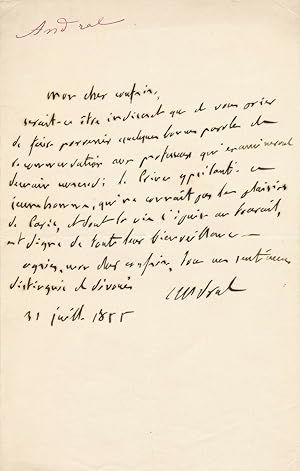 Andral
Mon cher confrère,
serait-ce être indiscret que de vous prier
de faire parvenir quelques bonnes paroles de
recommandation aux professeurs qui examineront
demain mercredi le Prince Ypsilanti. Ce
jeune homme, qui ne connait pas les plaisirs
de Paris, et dont la vie s'épuise au travail,
est digne de toute leur bienveillance —
agréez, mon cher confrère, tous mes sentiments
distingués et dévoués
Andral
31 juillet 1855